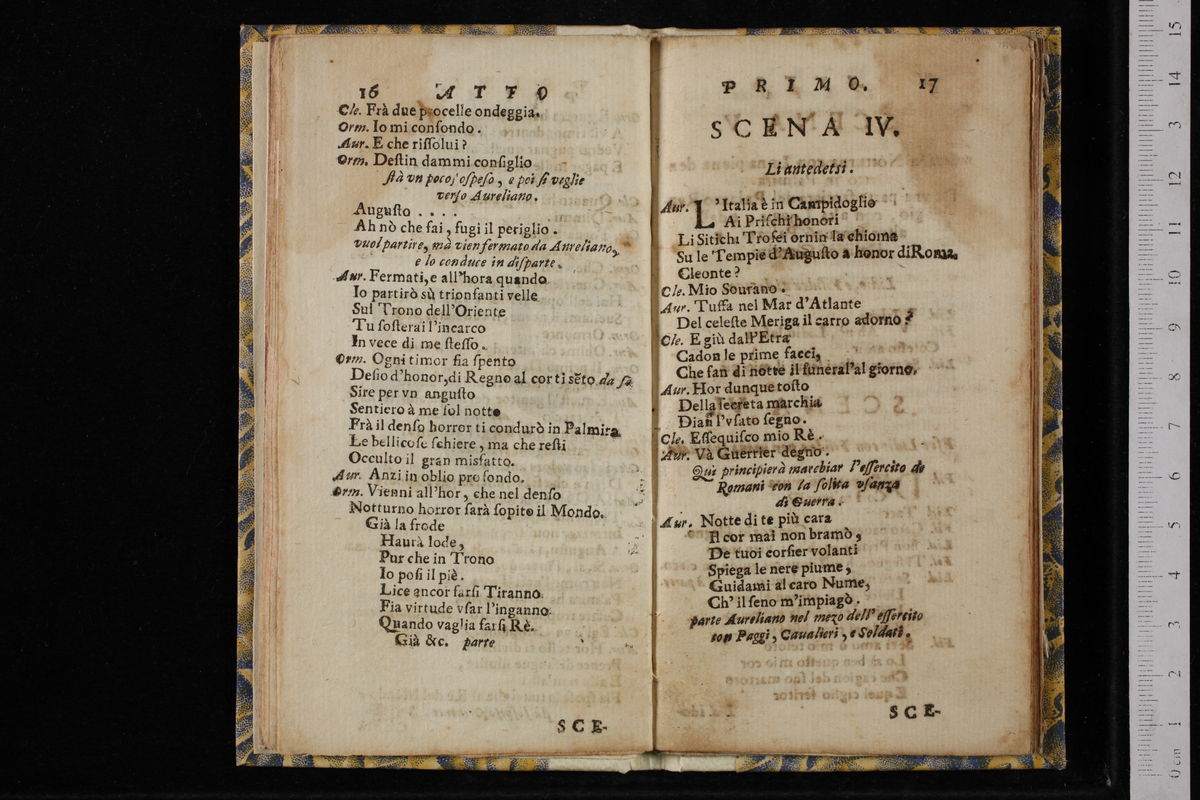 16 ATTO
Cle. Frà due procelle ondeggia.
Orm. Io mi confondo.
Aur. E che rissolui?
Orm. Destin dammi consiglio
stà vn poco sospeso, e poi si veglie
verso Aureliano.
Augusto . . . .
Ah nò che fai, fugi il periglio.
vuol partire, mà vien fermato da Aureliano,
e lo conduce in disparte.
Aur. Fermati, e all'hora quando
Io partirò sù trionfanti velle
Sul Trono dell'Oriente
Tu sosterai l'incarco
In vece di me stesso.
Orm. Ogni timor fia spento
Desio d'honor, di Regno al cor ti sẽto da sè
Sire per vn angusto
Sentiero à me sol notto
Frà il denso horror ti condurò in Palmira
Le bellicose schiere, ma che resti
Occulto il gran misfatto.
Aur. Anzi in oblio profondo.
Orm. Vienni all'hor, che nel denso
Notturno horror sarà sopito il Mondo.
Già la frode
Haurà lode,
Pur che in Trono
Io posi il piè.
Lice ancor farsi Tiranno
Fia virtude vsar l'inganno
Quando vaglia farsi Rè.
Già &c. parte
SCE-
PRIMO. 17
SCENA IV.
Li antedetsi.
Aur. L'Italia è in Campidoglio
Ai Prischi honori
Li Sitichi Trofei ornin la chioma
Su le Tempie d'Augusto a honor di Roma.
Cleonte?
Cle. Mio Sourano.
Aur. Tuffa nel Mar d'Atlante
Del celeste Meriga il carro adorno?
Cle. E giù dall'Etra
Cadon le prime faeci,
Che fan di notte il funeral'al giorno.
Aur. Hor dunque tosto
Della secreta marchia
Diasi l'vsato segno.
Cle. Essequisco mio Rè.
Aur. Và Guerrier degno.
Qui principierà marchiar l'essercito de
Romani con la solita vsanza
di Guerra.
Aur. Notte di te più cara
Il cor mai non bramò,
De tuoi corsier volanti
Spiega le nere piume,
Guidami al caro Nume,
Ch' il seno m'impiagò.
parte Aureliano nel mezo dell' essercito
con Paggi, Caualieri, e Soldati.
SCE-
15
14
13
12
11
10
9
8
7
6
5
4
3
2
1
0 cm